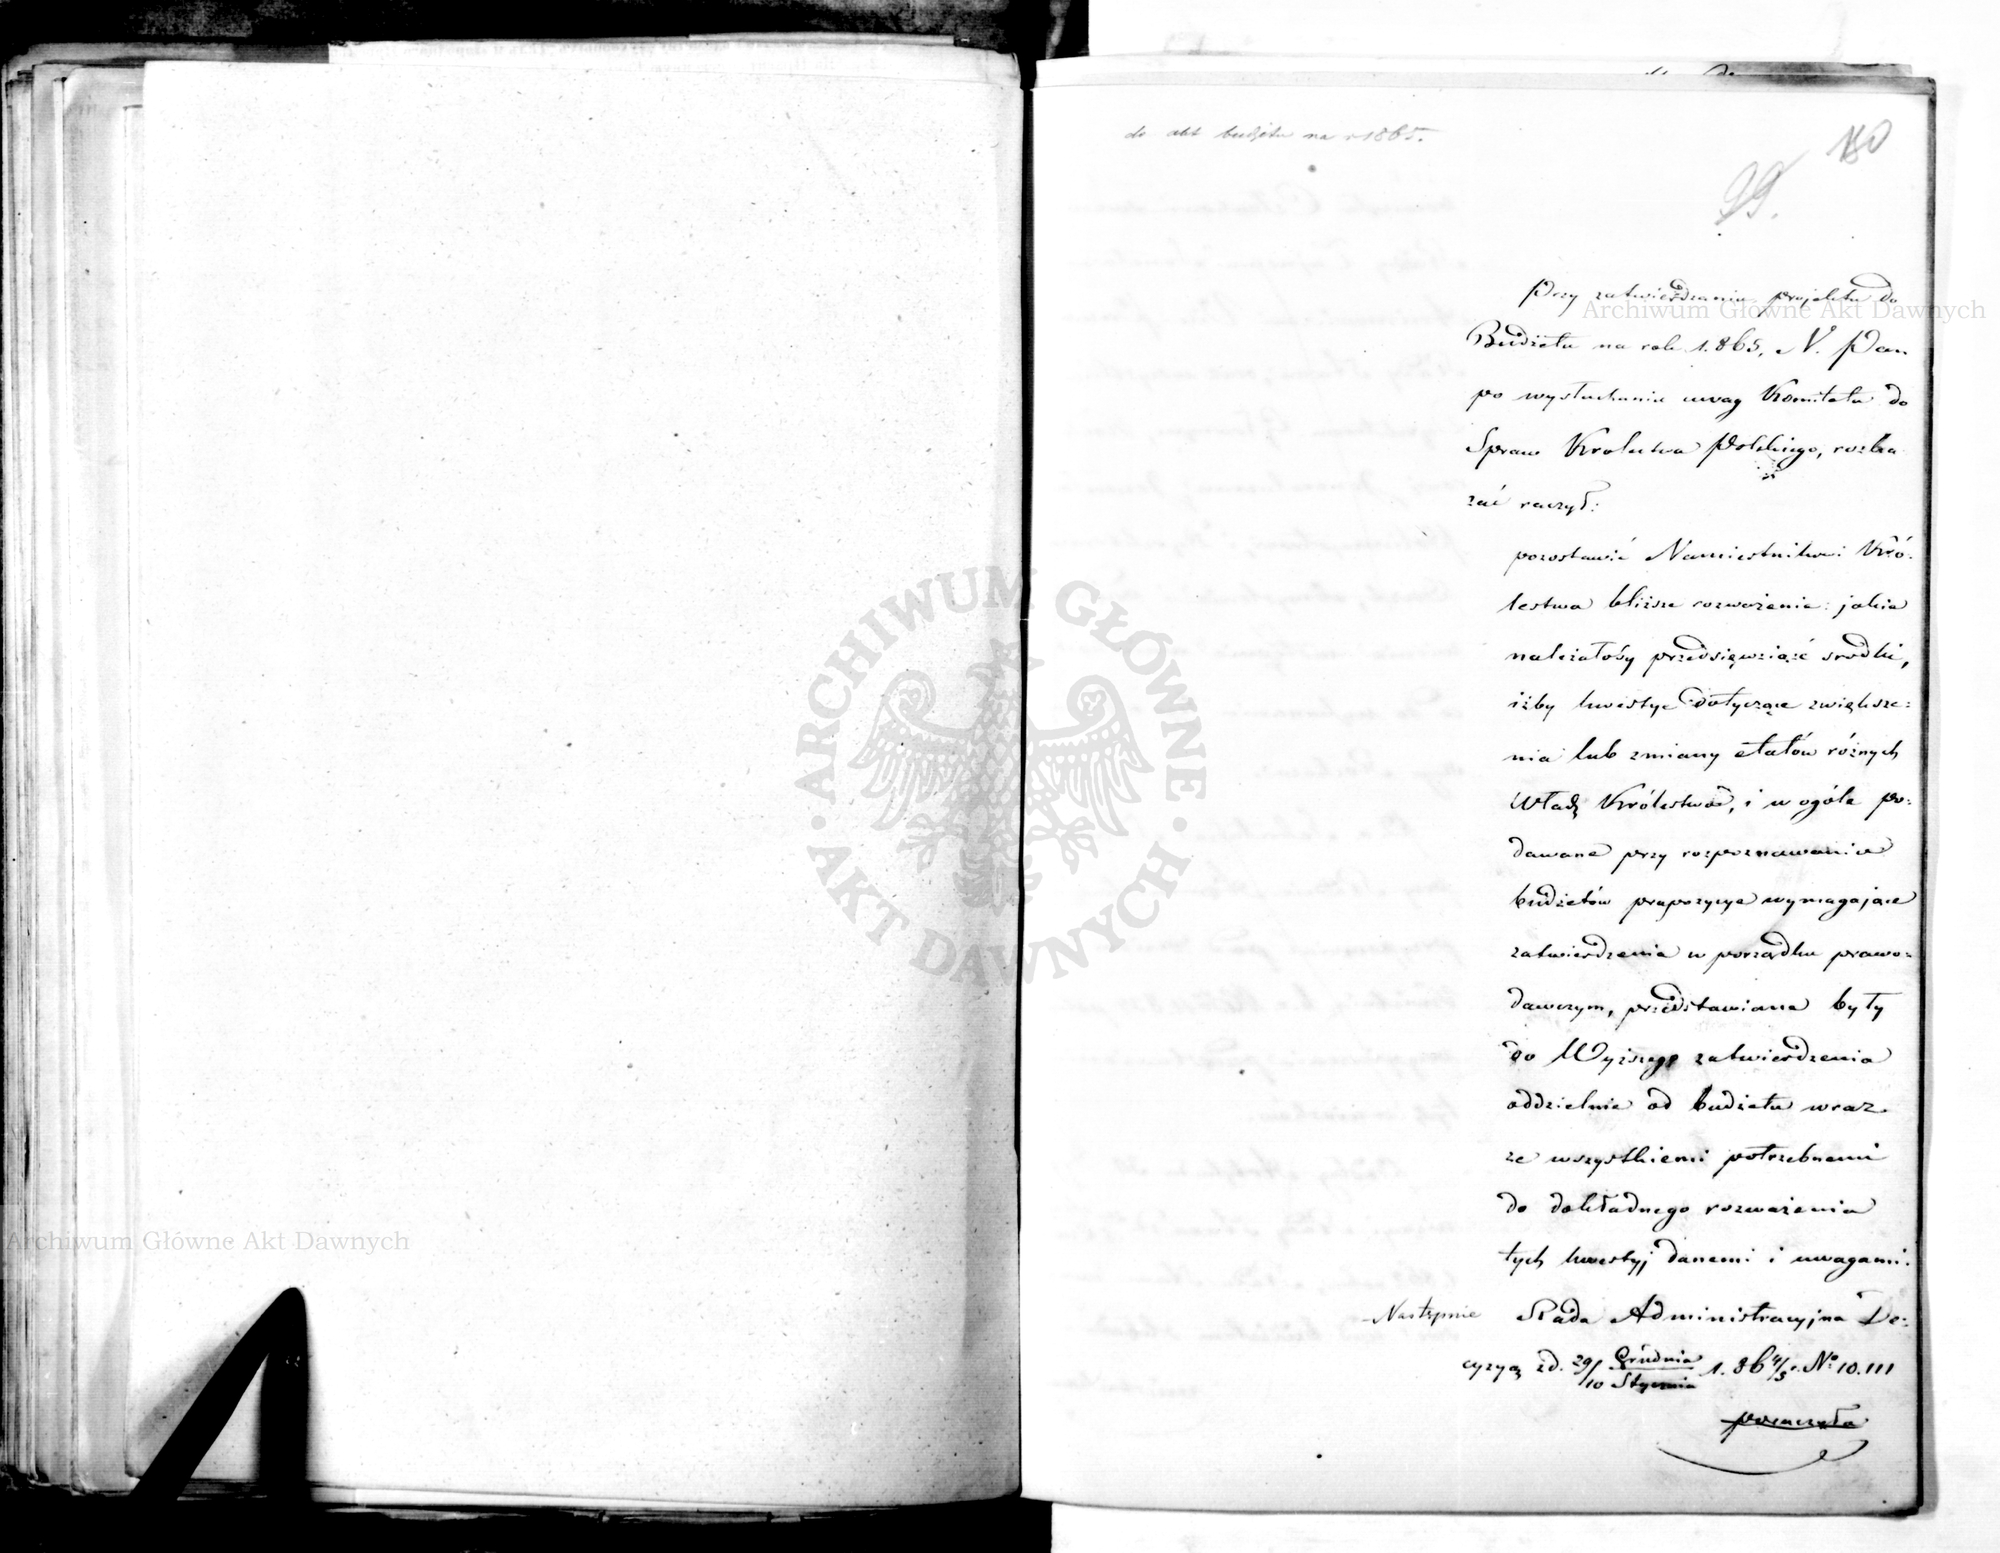 do akt budżetu na r 1865.
180
99.
Przy zatwierdzaniu projektu do
Budżetu na rok 1865, N. Pan
po wysłuchaniu uwag Komitetu do
Spraw Krolestwa Polskiego, rozka
zać raczył:
pozostawić Namiestnikowi Kró-
lestwa bliższe rozważenie: jakie
należałoby przedsięwziąść srodki,
iżby kwestye dotyczące zwiększe-
nia lub zmiany etatów różnych
Władz Królestwa, i w ogóle po-
dawane przy rozpoznawaniu
budżetów propozycye wymagające
zatwierdzenia w porządku prawo-
dawczym, przedstawiane były
do Wyższego zatwierdzenia
oddzielnie od budżetu wraz
ze wszystkiemi potrzebnemi
do dokładnego rozważenia
tych kwestyj danemi i uwagami.
Następnie Rada Administracyjna De-
cyzyą z d. 29/10 Grudnia/Stycznia 1.86 4/5 r. No 10.111
poruczyła
Archiwum Główne Akt Dawnych
ARCHIWUM GŁÓWNE
AKT DAWNYCH
Archiwum Główne Akt Dawnych